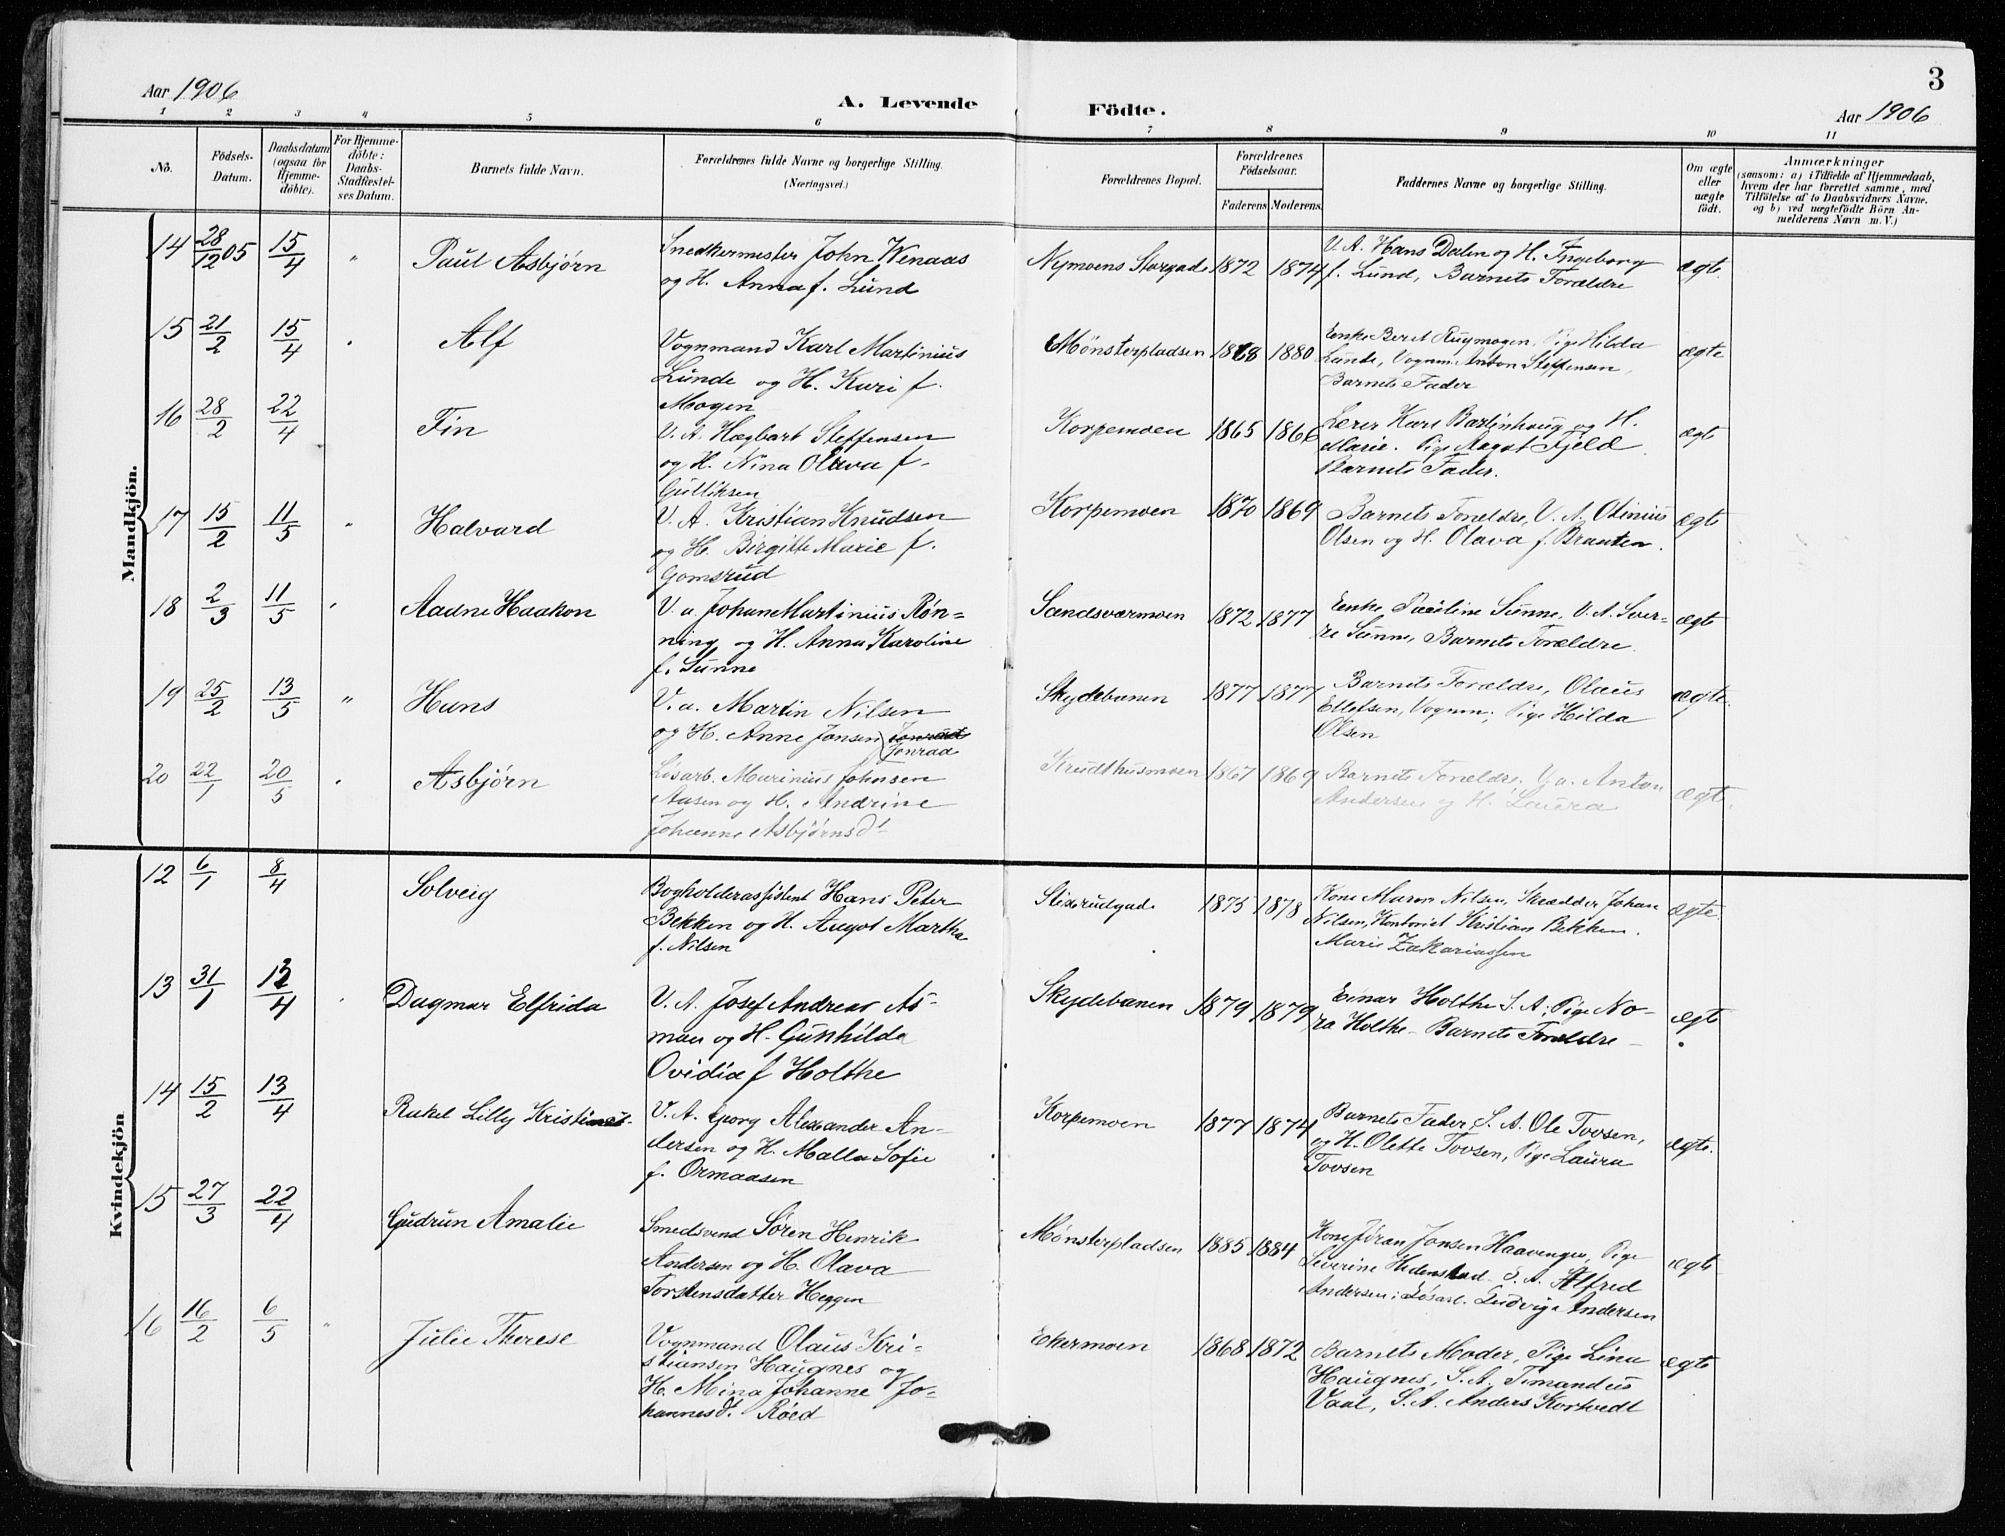 3
Aar 1906
A. Levende
Födte.
Aar 1906
1 2 3 4 5 6 7 8 9 10 11
No.
Födsels-
Datum.
Daabsdatum
(ogsaa for
Hjemme-
döbte).
For Hjemme-
döbte:
Daabs-
Stadfæstel-
ses Datum.
Barnets fulde Navn.
Forældrenes fulde Navne og borgerlige Stilling.
(Næringsvei.)
Forældrenes Bopæl.
Forældrenes
Födselsaar.
Faderens. Moderens.
Faddernes Navne og borgerlige Stilling.
Om ægte
eller
uægte
födt.
Anmærkninger
(saasom: a) i Tilfælde af Hjemmedaab,
hvem der har forrettet samme, med
Tilföielse af to Daabsvidners Navne,
og b) ved uægtefödte Börn An-
melderens Navn m. V.)
Mandkjön.
14 28/12 05 15/4 " Paul Asbjørn
Snedkermester John Wenaas
og H. Anna f. Lund
Nymoens Storgade 1872 1874
V. A. Hans Dalen og H. Ingeborg
f. Lund, Barnets Forældre
ægte.
15 21/2 15/4 Alf
Vognmand Karl Martinius
Lunde og H. Kari f.
Mogen
Mønsterpladsen 1878 1880
Enke Beret Rugmogen, Pige Hilda
Lunde, Vognm. Anton Steffensen,
Barnets Fader
ægte
16 28/2 22/4 Fin
V. A. Hagbart Steffensen
og H. Nina Olava f.
Gulliksen
Korpemoen 1865 1866
Lærer Karl Bartinhoug og H.
Marie. Pige Aagot Fjeld
Barnets Fader.
ægt
17 15/2 11/5 " Halvard
V. A. Kristian Knudsen
og H. Birgitte Marie f.
Gomsrud
Korpemoen 1870 1869
Barnets Forældre, V. A. Otinius
Olsen og H. Olava f. Braaten.
ægte
18 2/3 11/5 Aadne Haakon
V. a. Johan Martinius Røn-
ning og H. Anna Karoline
f. Sunne
Sandsværmoen 1872 1877
Enke Pauline Sunne, V. A. Sver-
re Sunne, Barnets Forældre.
ægte
19 25/2 13/5 " Hans
V. a. Martin Nilsen
og H. Anne Jonsen
Jonrad
Skydebanen 1877 1877
Barnets Forældre, Olaus
Ellefsen, Vognm; Pige Hilda
Olsen
ægte.
20 22/1 20/5 Asbjørn
Løsarb. Marinius Johnsen
Aasen og H. Andrine
Johanne Asbjørnsdt
Krudthusmoen 1867 1869
Barnets Forældre. V. a. Anton
Andersen og H. Laura
ægt.
Kvindekjön
12 6/1 8/4 Solveig
Bogholderassistent Hans Peter
Bekken og H. Aagot Martha
f. Nilsen
Stixrudgade 1875 1878
Kone Maren Nilsen, Skrædder Johan
Nilsen, Kontorist Kristian Bekken.
Marie Zakariassen
ægte.
13 31/1 /4 Dagmar Elfrida
V. A. Josef Andreas As-
man og H. Gunhilda
Ovidia f Holthe
Skydebanen 1879 1879
Einar Holthe S. A; Pige No-
ra Holthe - Barnets Forældre
ægt
14 15/2 13/4 Rakel Lilly Kristine
V. A. Georg Alexander An-
dersen og H. Malla Sofie
f. Ormaasen
Korpemoen 1877 1874
Barnets Fader, S. A. Ole Tovsen,
og H. Olette Tovsen, Pige Laura
Tovsen
ægte.
15 27/3 22/4 Gudrun Amalie
Smedsvend Søren Henrik
Andersen og H. Olava
Torstensdatter Heggen
Mønsterpladsen 1885 1884
Kone Jøran Jonsen Haavengen, Pige
Severine Hedenstad S. A. Alfred
Andersen; Løsarb. Ludvig Andersen
ægte
16 16/2 6/5 " Julie Therese
Vognmand Olaus Kri-
stiansen Haugnes og
H. Mina Johanne Jo-
hannesdt. Røed
Ekermoen 1868 1872
Barnets Moder, Pige Lina
Haugnes, S. A. Timandus
Vaal, S. A. Anders Kortvedt
ægte